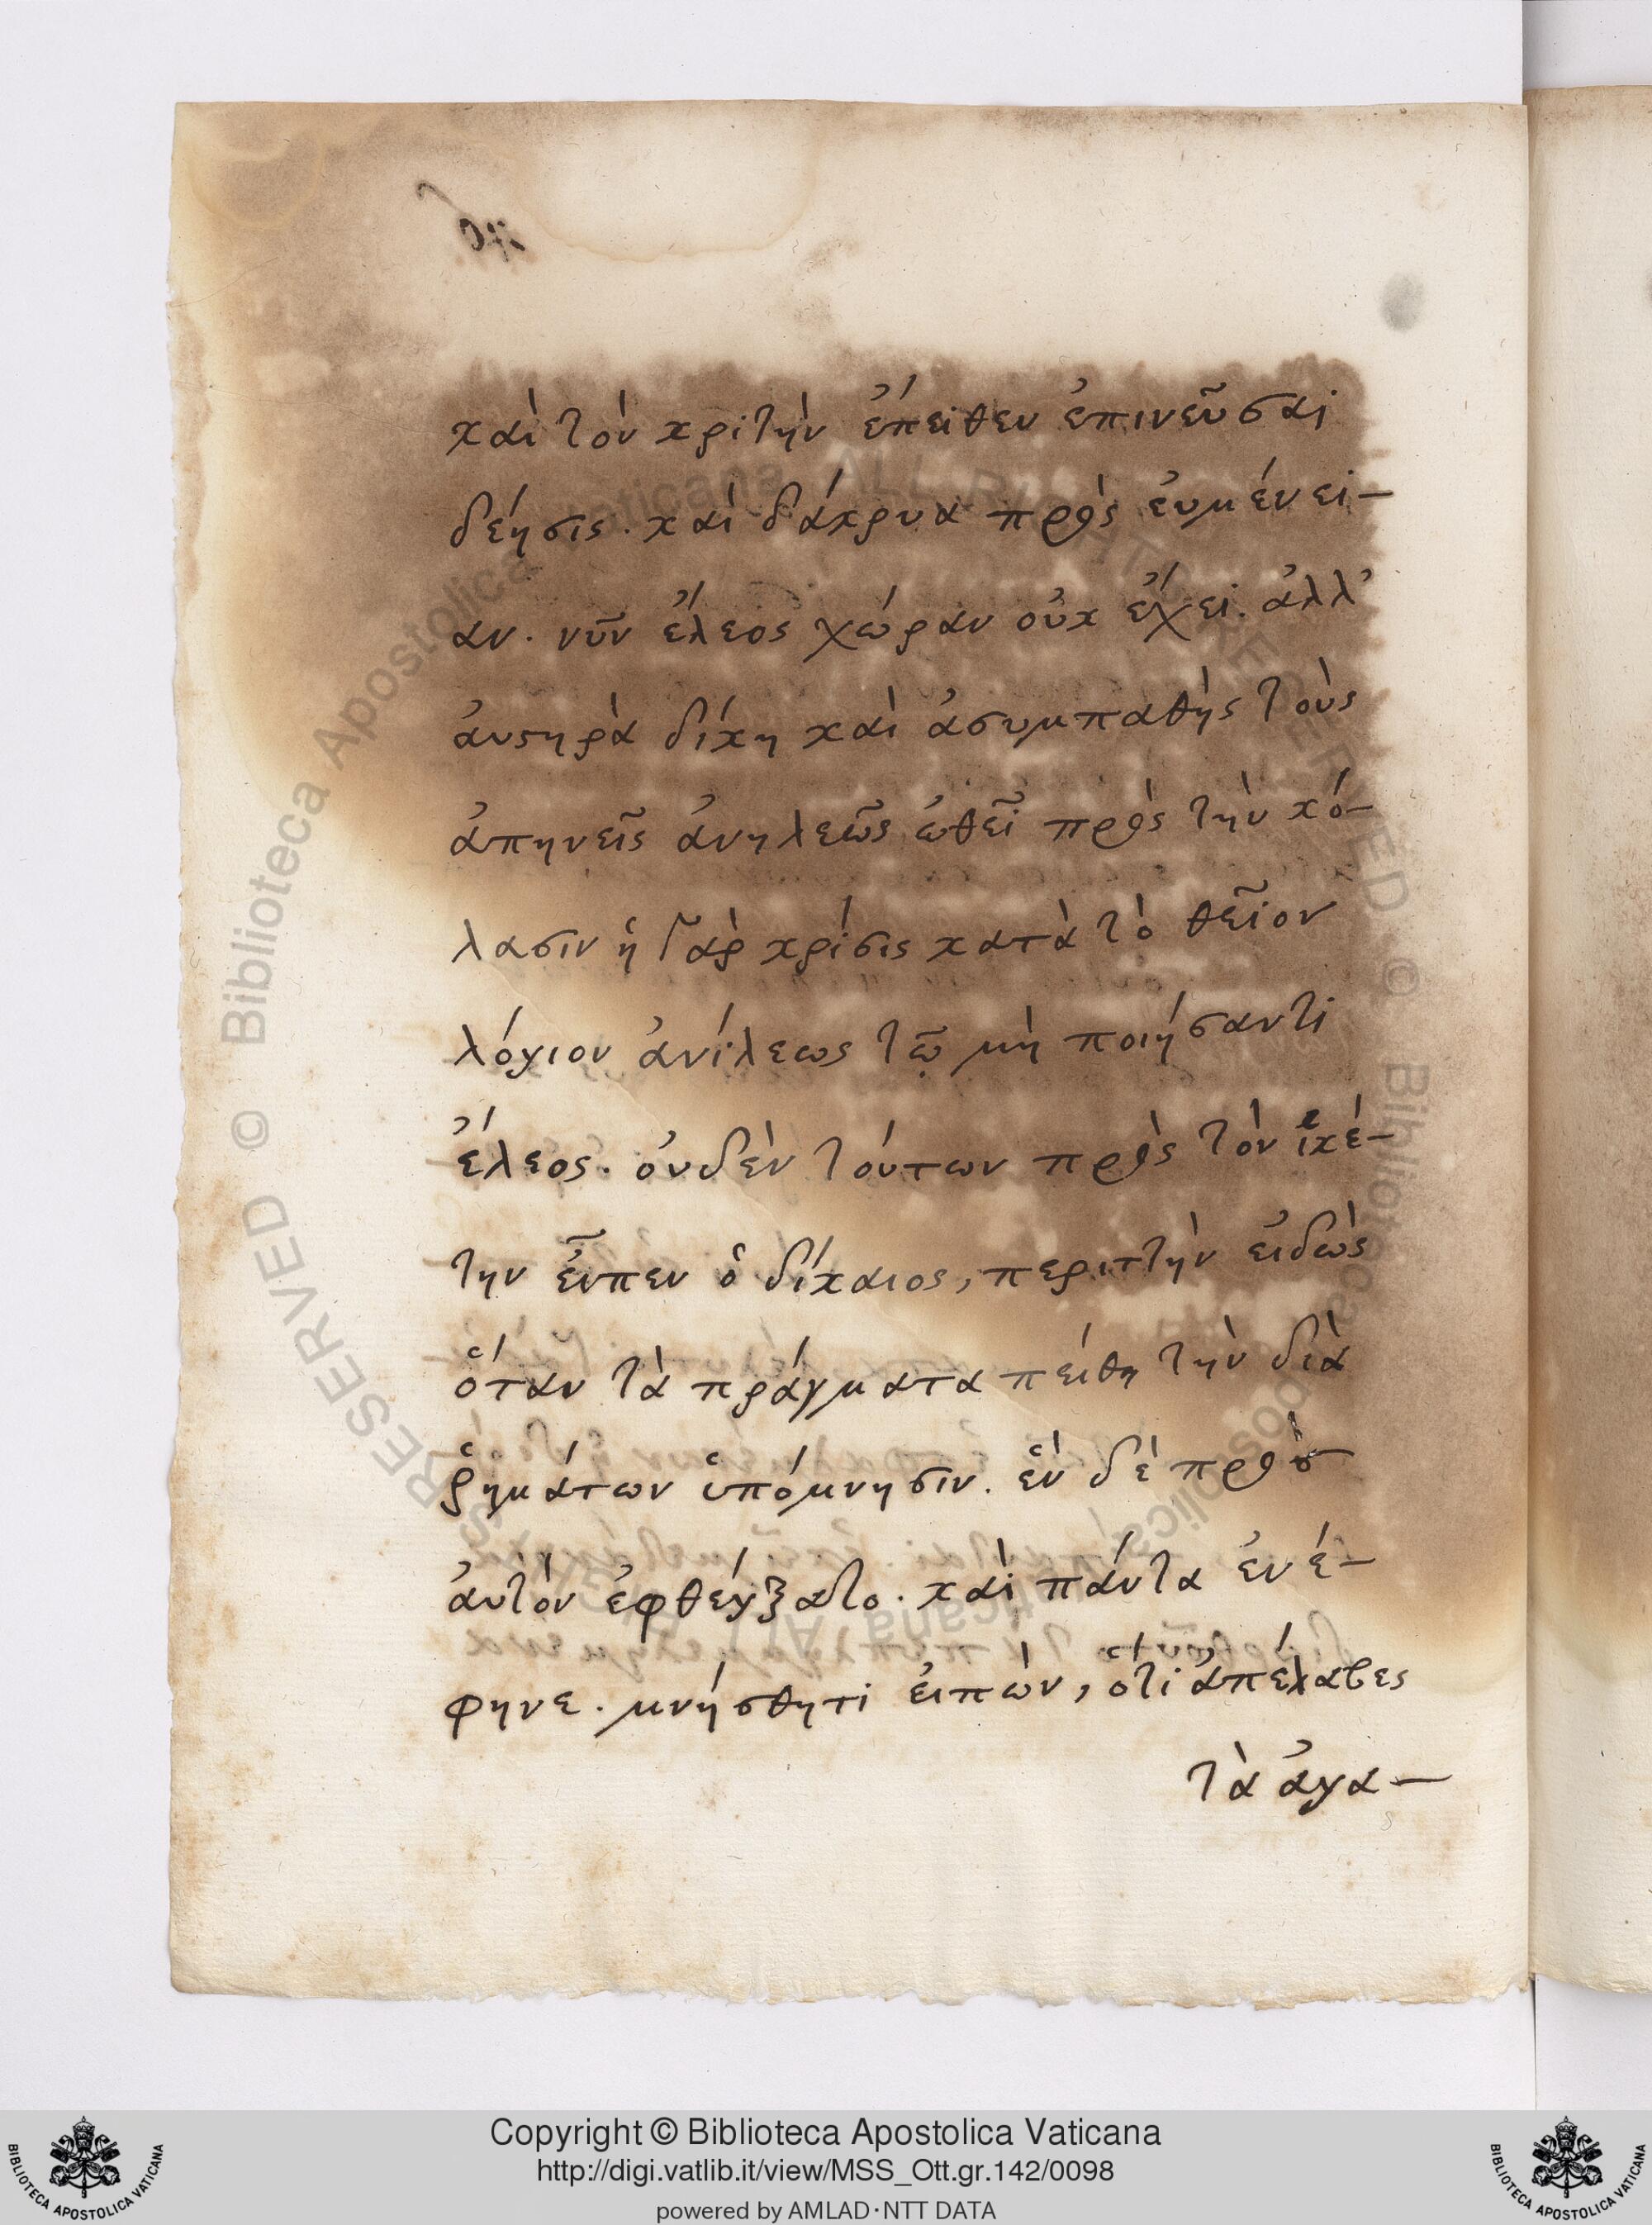 καὶ τὸν κριτὴν ἔπειθεν ἐπινεῦσαι
δέησις. καὶ δάκρυα πρὸς ἐυμένει-
αν. νῦν ἔλεος χώραν οὐκ ἔχει. ἀλλ’
ἀυστηρὰ δίκη καὶ ἀσυμπαθὴς τοὺς
ἀπηνεῖς ἀνηλεῶς ὠθεῖ πρὸς τὴν κό-
λασιν ἡ γὰρ κρίσις κατὰ τὸ θεῖον
λόγιον ἀνίλεως τῷ μὴ ποιήσαντι
ἔλεος. ὀυδὲν τούτων πρὸς τὸν ἱκέ-
την ἶπεν ὁ δίκαιος, περιττὴν ἐιδὼς
ὅταν τὰ πράγματα πείθη τὴν διὰ
ῥημάτων ὑπόμνησιν. ἓν δὲ πρὸς
ἀυτὸν ἐφθέγξατο. καὶ πάντα ἐνέ-
φηνε. μνήσθητι ἐιπὼν, ὅτι ἀπέλαβες
τὰ ἀγα-
Biblioteca Apostolica Vaticana ALL RIGHTS RESERVED ©
Biblioteca Apostolica Vaticana ALL RIGHTS RESERVED ©
Copyright © Biblioteca Apostolica Vaticana
http://digi.vatlib.it/view/MSS_Ott.gr.142/0098
powered by AMLAD·NTT DATA
BIBLIOTECA APOSTOLICA VATICANA
BIBLIOTECA APOSTOLICA VATICANA